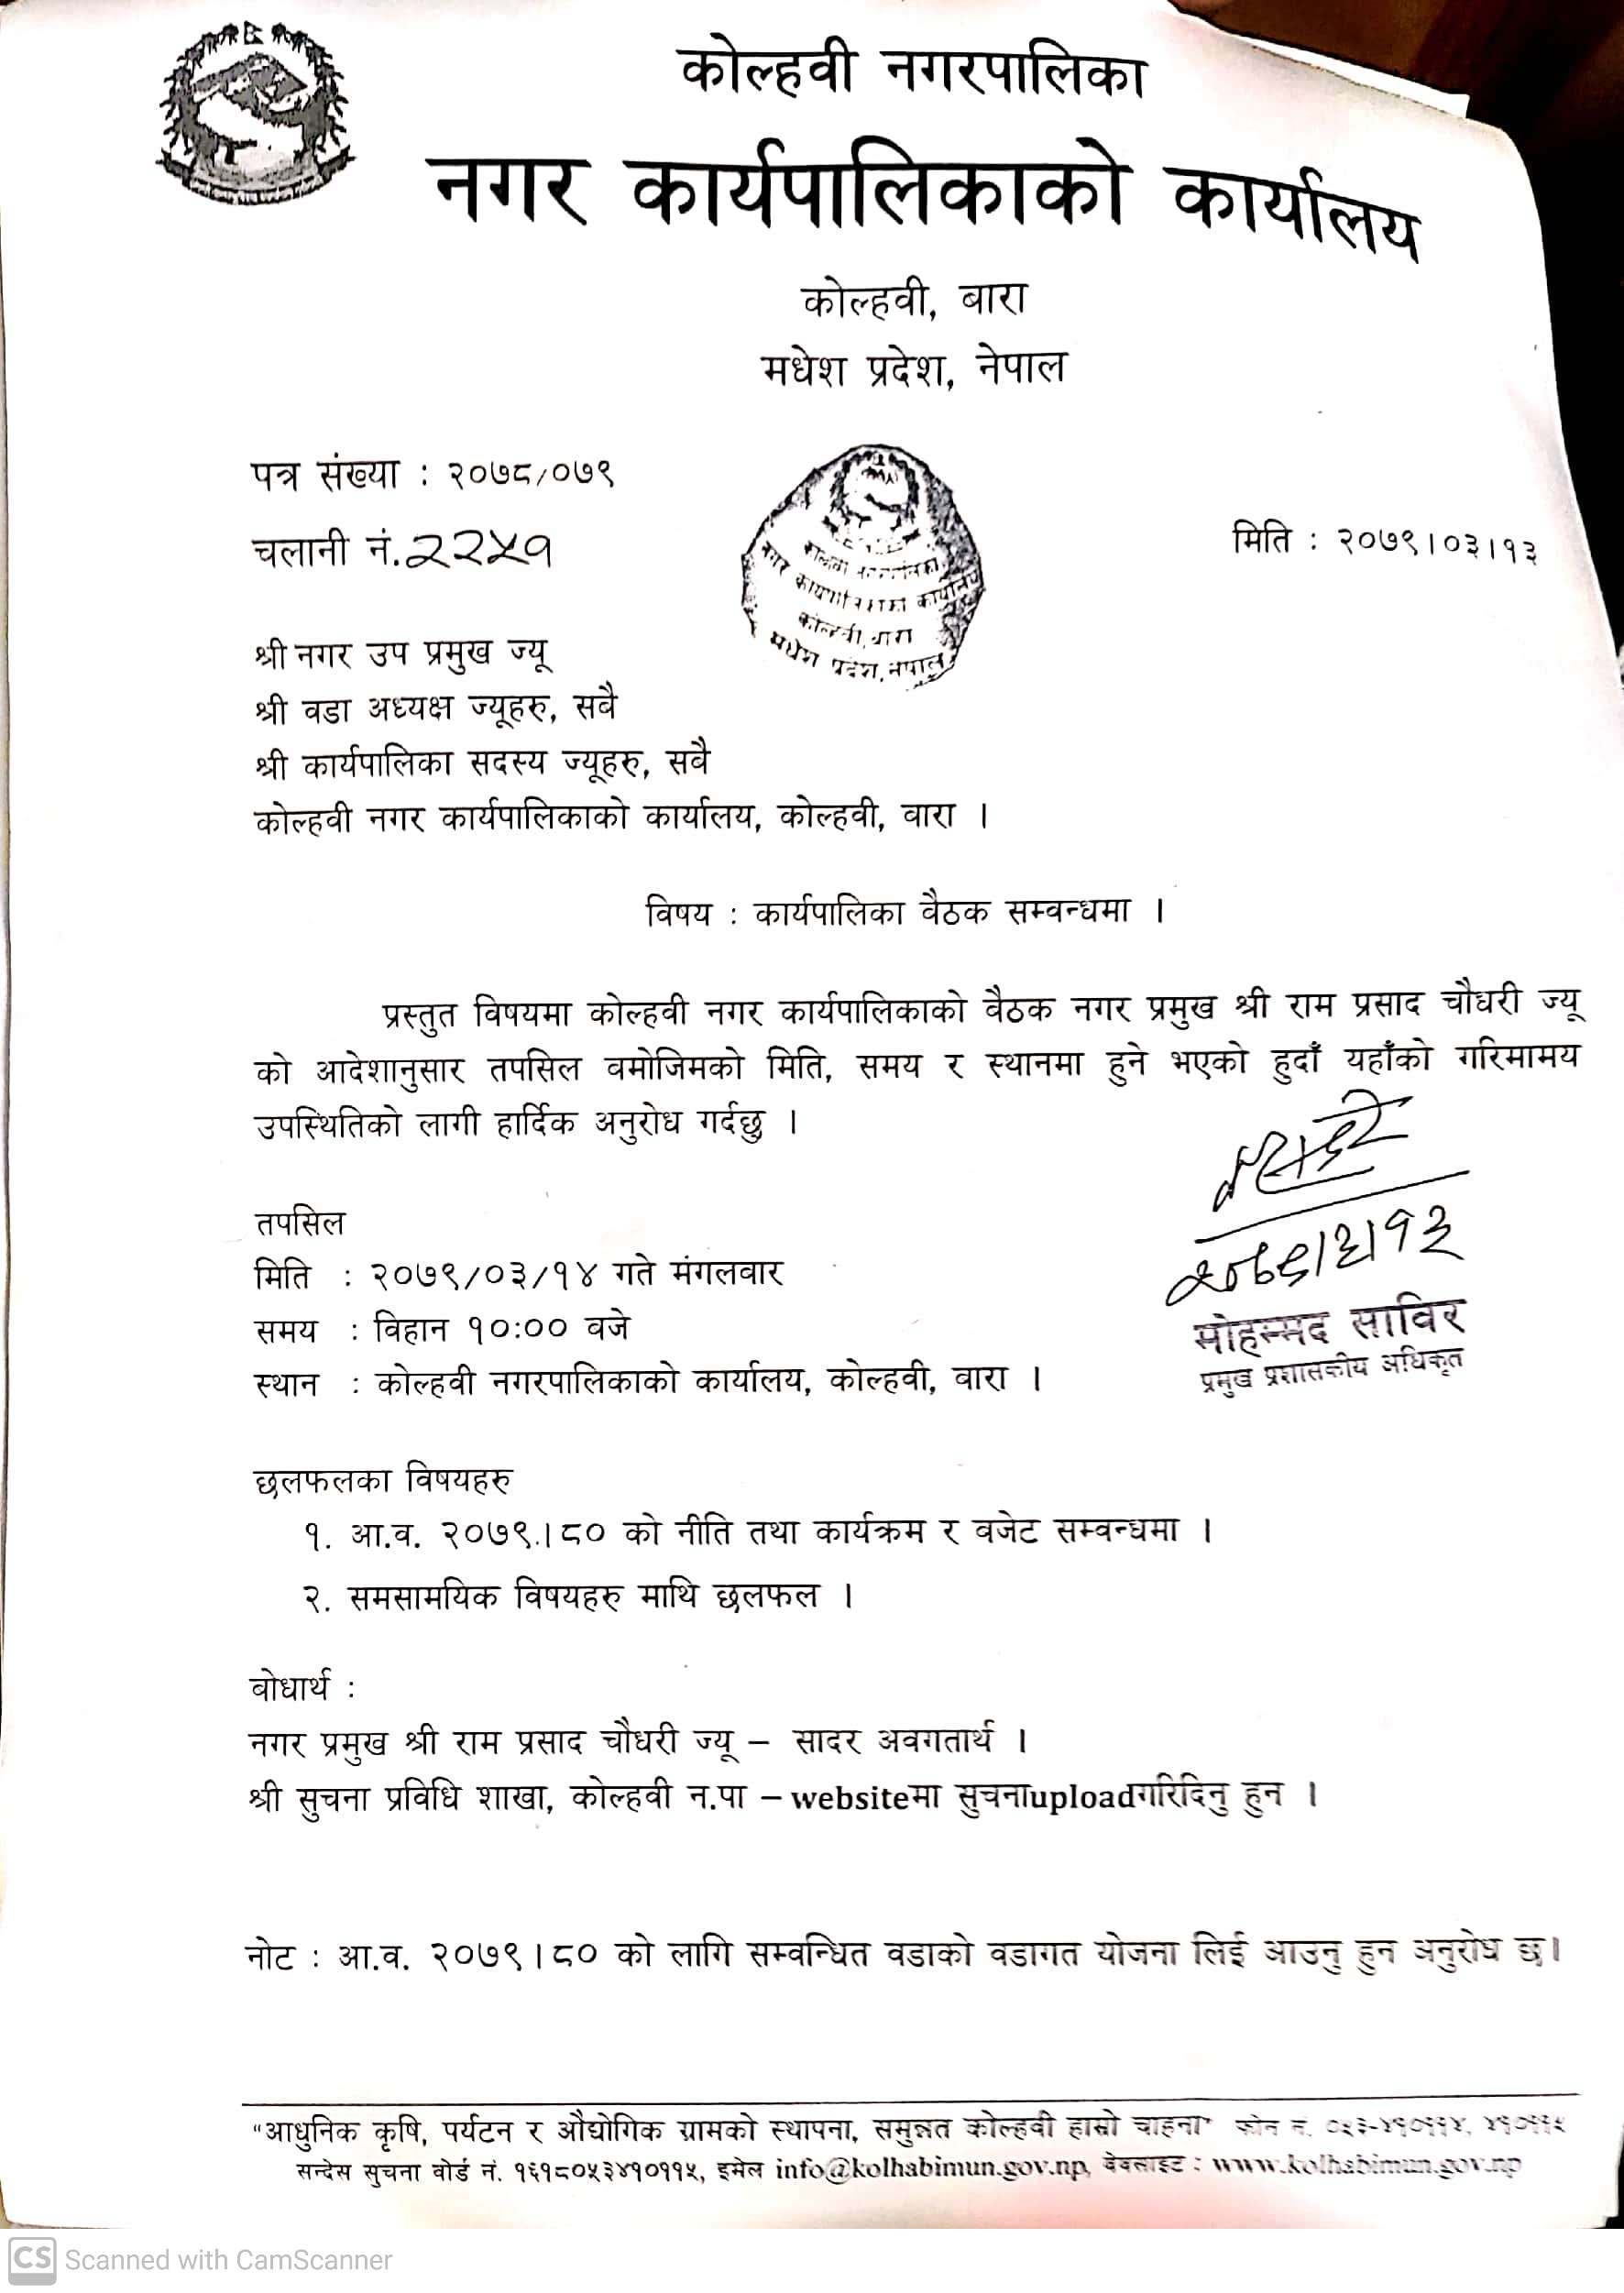 कोल्हवी नगरपालिका
नगर कार्यपालिकाको कार्यालय
कोल्हवी, बारा
मधेश प्रदेश, नेपाल
पत्र संख्या : २०७८/०७९
चलानी नं.२२५१
मिति : २०७९।०३।१३
कोल्हवी नगरपालिका
नगर कार्यपालिकाको कार्यालय
कोल्हवी, बारा
मधेश प्रदेश, नेपाल
श्री नगर उप प्रमुख ज्यू
श्री वडा अध्यक्ष ज्यूहरु, सवै
श्री कार्यपालिका सदस्य ज्यूहरु, सवै
कोल्हवी नगर कार्यपालिकाको कार्यालय, कोल्हवी, वारा ।
विषय : कार्यपालिका वैठक सम्वन्धमा ।
प्रस्तुत विषयमा कोल्हवी नगर कार्यपालिकाको वैठक नगर प्रमुख श्री राम प्रसाद चौधरी ज्यू
को आदेशानुसार तपसिल वमोजिमको मिति, समय र स्थानमा हुने भएको हुदाँ यहाँको गरिमामय
उपस्थितिको लागी हार्दिक अनुरोध गर्दछु ।
तपसिल
मिति : २०७९/०३/१४ गते मंगलवार
समय : विहान १०:०० वजे
स्थान : कोल्हवी नगरपालिकाको कार्यालय, कोल्हवी, वारा ।
२०७९।३।१३
मोहम्मद साविर
प्रमुख प्रशासकीय अधिकृत
छलफलका विषयहरु
१. आ.व. २०७९.।८० को नीति तथा कार्यक्रम र वजेट सम्वन्धमा ।
२. समसामयिक विषयहरु माथि छलफल ।
बोधार्थ :
नगर प्रमुख श्री राम प्रसाद चौधरी ज्यू – सादर अवगतार्थ ।
श्री सुचना प्रविधि शाखा, कोल्हवी न.पा – websiteमा सुचनाuploadगरिदिनु हुन ।
नोट : आ.व. २०७९।८० को लागि सम्वन्धित वडाको वडागत योजना लिई आउनु हुन अनुरोध छ।
“आधुनिक कृषि, पर्यटन र औद्योगिक ग्रामको स्थापना, समुन्नत कोल्हवी हाम्रो चाहना” फोन नं. ०५३-४१०११४, ४१०११५
सन्देस सुचना वोर्ड नं. १६१८०५३४१०११५, इमेल info@kolhabimun.gov.np, वेवसाइट : www.kolhabimun.gov.np
CS Scanned with CamScanner